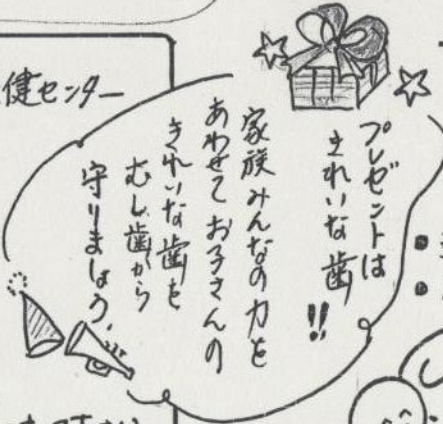 健センター
プレゼントは
きれいな歯!!
家族みんなの力を
あわせて お子さんの
きれいな歯を
むし歯から
守りましょう。